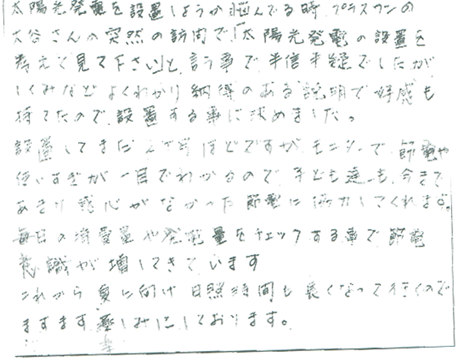 太陽光発電を設置しようか悩んでる時、プラスワンの
大谷さんの突然の訪問で「太陽光発電の設置を
考えて見て下さい」と言う事で半信半疑でしたが
しくみなどよくわかり納得のある説明で好感も
持てたので、設置する事に決めました。
設置してまだ ほどですが、モニターで、節電や
使いすぎが一目でわかるので、子ども達も、今まで
あまり関心がなかった節電に協力してくれます。
毎日の消費量や発電量をチェックする事で節電
意識が増してきています
これから夏に向け日照時間も長くなって行くので
ますます楽しみにしております。